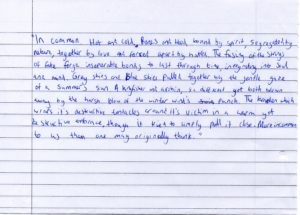 "In common Hot and cold, Roses and Hail bound by spirit, segregated by
nature, together by love and forced apart by hatred. The fusing of the strings
of fate forge inseparable bonds to last through time, integrating into Soul
and mind. Grey skies and Blue skies Pulled together by the gentle gaze
of a Summer's Sun. A and , so different yet both
swing by the harsh blow of the winter wind's punch. The which
wraps it's destructive tentacles around it's victim in a warm yet
destructive embrace, though it tries to simply pull it close. More in common
to us than one may originally think."